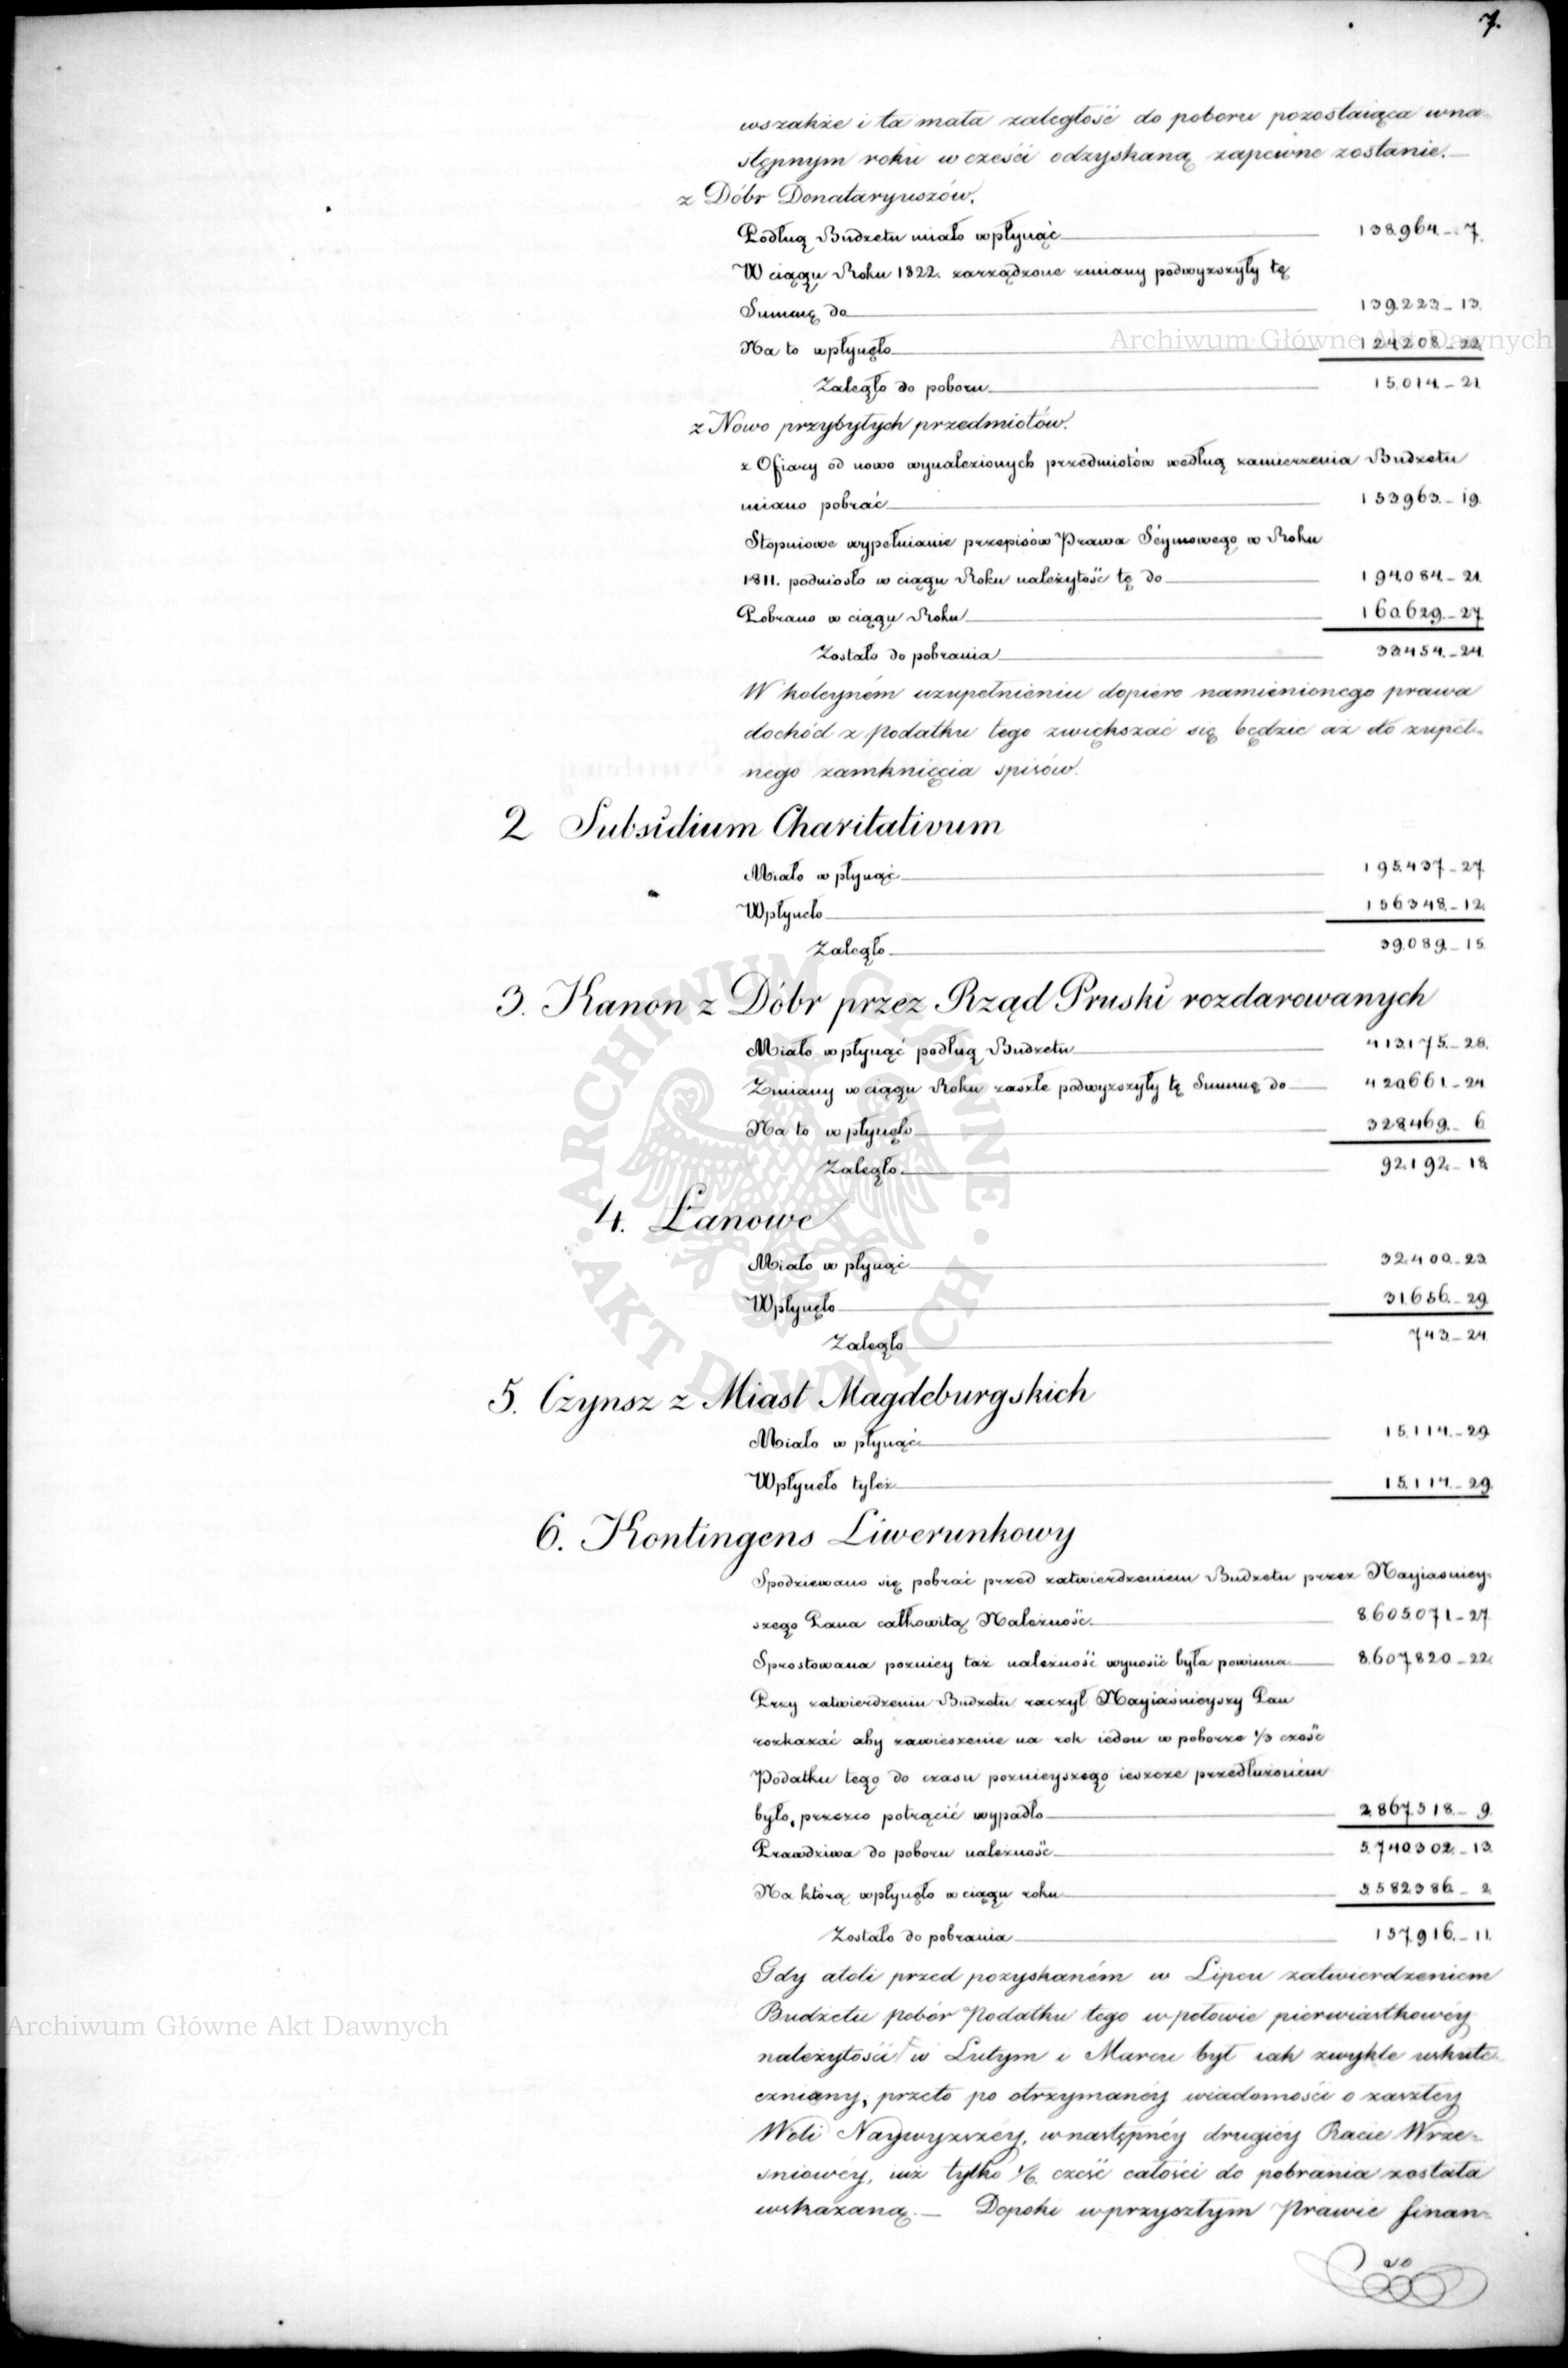 7.
wszakże i ta mała zaległość do poboru pozostaiąca w na-
stępnym roku w cześci odzyskaną zapewne zostanie.—
z Dóbr Donataryuszów.
Podług Budżetu miało wpłynąć 138,964.-7.
W ciągu Roku 1822. zarządzone zmiany podwyższyły tę
Summę do 139,223.-13.
Na to wpłynęło 124,208.-22.
Zaległo do poboru 15,014.-21.
z Nowo przybyłych przedmiotów.
z Ofiary od nowo wynalezionych przedmiotów według zamierzenia Budżetu
miano pobrać 153,963.-19.
Stopniowe wypełnianie przepisów Prawa Séymowego w Roku
1811. podniosło w ciągu Roku należytość tę do 194,084.-21.
Pobrano w ciągu Roku 160,629.-27
Zostało do pobrania 33,454.-24.
W koleyném uzupełnieniu dopiero namienionego prawa
dochód z podatku tego zwiększać się będzie aż do zupeł-
nego zamknięcia spisów.
2 Subsidium Charitativum
Miało wpłynąć 195,437.-27.
Wpłyneło 156,348.-12.
Zaległo 39,089.-15.
3. Kanon z Dóbr przez Rząd Pruski rozdarowanych
Miało wpłynąć podług Budżetu 413,175.-28.
Zmiany w ciągu Roku zaszłe podwyższyły tę Summę do 420,661.-24
Na to wpłynęło 328,469.-6
Zaległo 92,192.-18.
4. Łanowe
Miało wpłynąć 32,400.-23.
Wpłynęło 31,656.-29.
Zaległo 743.-24.
5. Czynsz z Miast Magdeburgskich
Miało wpłynąć 15,114.-29.
Wpłyneło tyleż 15,114.-29.
6. Kontingens Liwerunkowy
Spodziewano się pobrać przed zatwierdzeniem Budżetu przez Nayiaśniey-
szego Pana całkowitą Należność 8,605,071.-27.
Sprostowana poźniey taż należność wynosić była powinna 8,607,820.-22.
Przy zatwierdzeniu Budżetu raczył Nayiaśnieyszy Pan
rozkazać aby zawieszenie na rok ieden w poborze 1/3 cześć
Podatku tego do czasu poznieyszego ieszcze przedłużoném
było, przezco potrącić wypadło 2,867,518.-9.
Prawdziwa do poboru należność 5,740,302.-13.
Na którą wpłynęło w ciągu roku 5,582,386.-2.
Zostało do pobrania 157,916.-11.
Gdy atoli przed pozyskaném w Lipcu zatwierdzeniem
Budżetu pobór Podatku tego w połowie pierwiastkowéy
należytości w Lutym i Marcu był iak zwykle uskute-
czniany, przeto po otrzymanéy wiadomości o zaszłey
Woli Naywyższéy, w następnéy drugiéy Racie Wrze-
śniowéy, iuż tylko 1/6. cześć całości do pobrania została
wskazaną.— Dopoki w przyszłym Prawie finan-
Archiwum Główne Akt Dawnych
Archiwum Główne Akt Dawnych
ARCHIWUM GŁÓWNE · AKT DAWNYCH ·